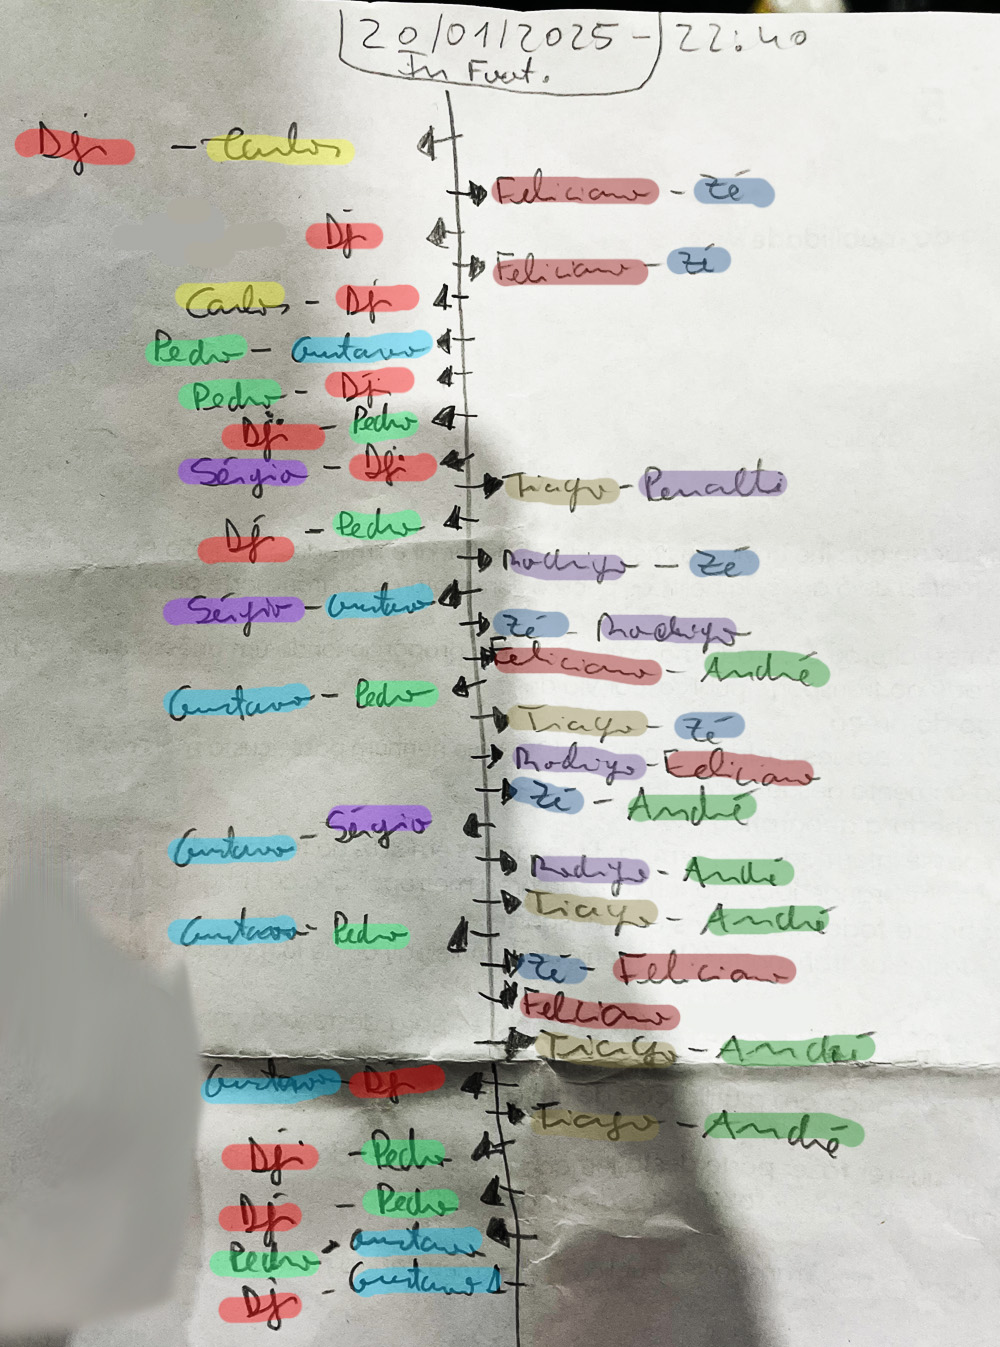 20/01/2025 - 22:40
In Fuut.
Dji - Carlos
Feliciano - Zé
Dj
Feliciano - Zé
Carlos - Dji
Pedro - Gustavo
Pedro - Dji
Dji - Pedro
Sérgio - Dji
Tiago - Penalti
Dj - Pedro
Rodrigo - Zé
Sérgio - Gustavo
Zé - Rodrigo
Feliciano - André
Gustavo - Pedro
Tiago - Zé
Rodrigo - Feliciano
Zé - André
Gustavo - Sérgio
Rodrigo - André
Tiago - André
Gustavo - Pedro
Zé - Feliciano
Feliciano
Tiago - André
Gustavo - Dji
Tiago - André
Dji - Pedro
Dj - Pedro
Pedro - Gustavo
Dj - Gustavo